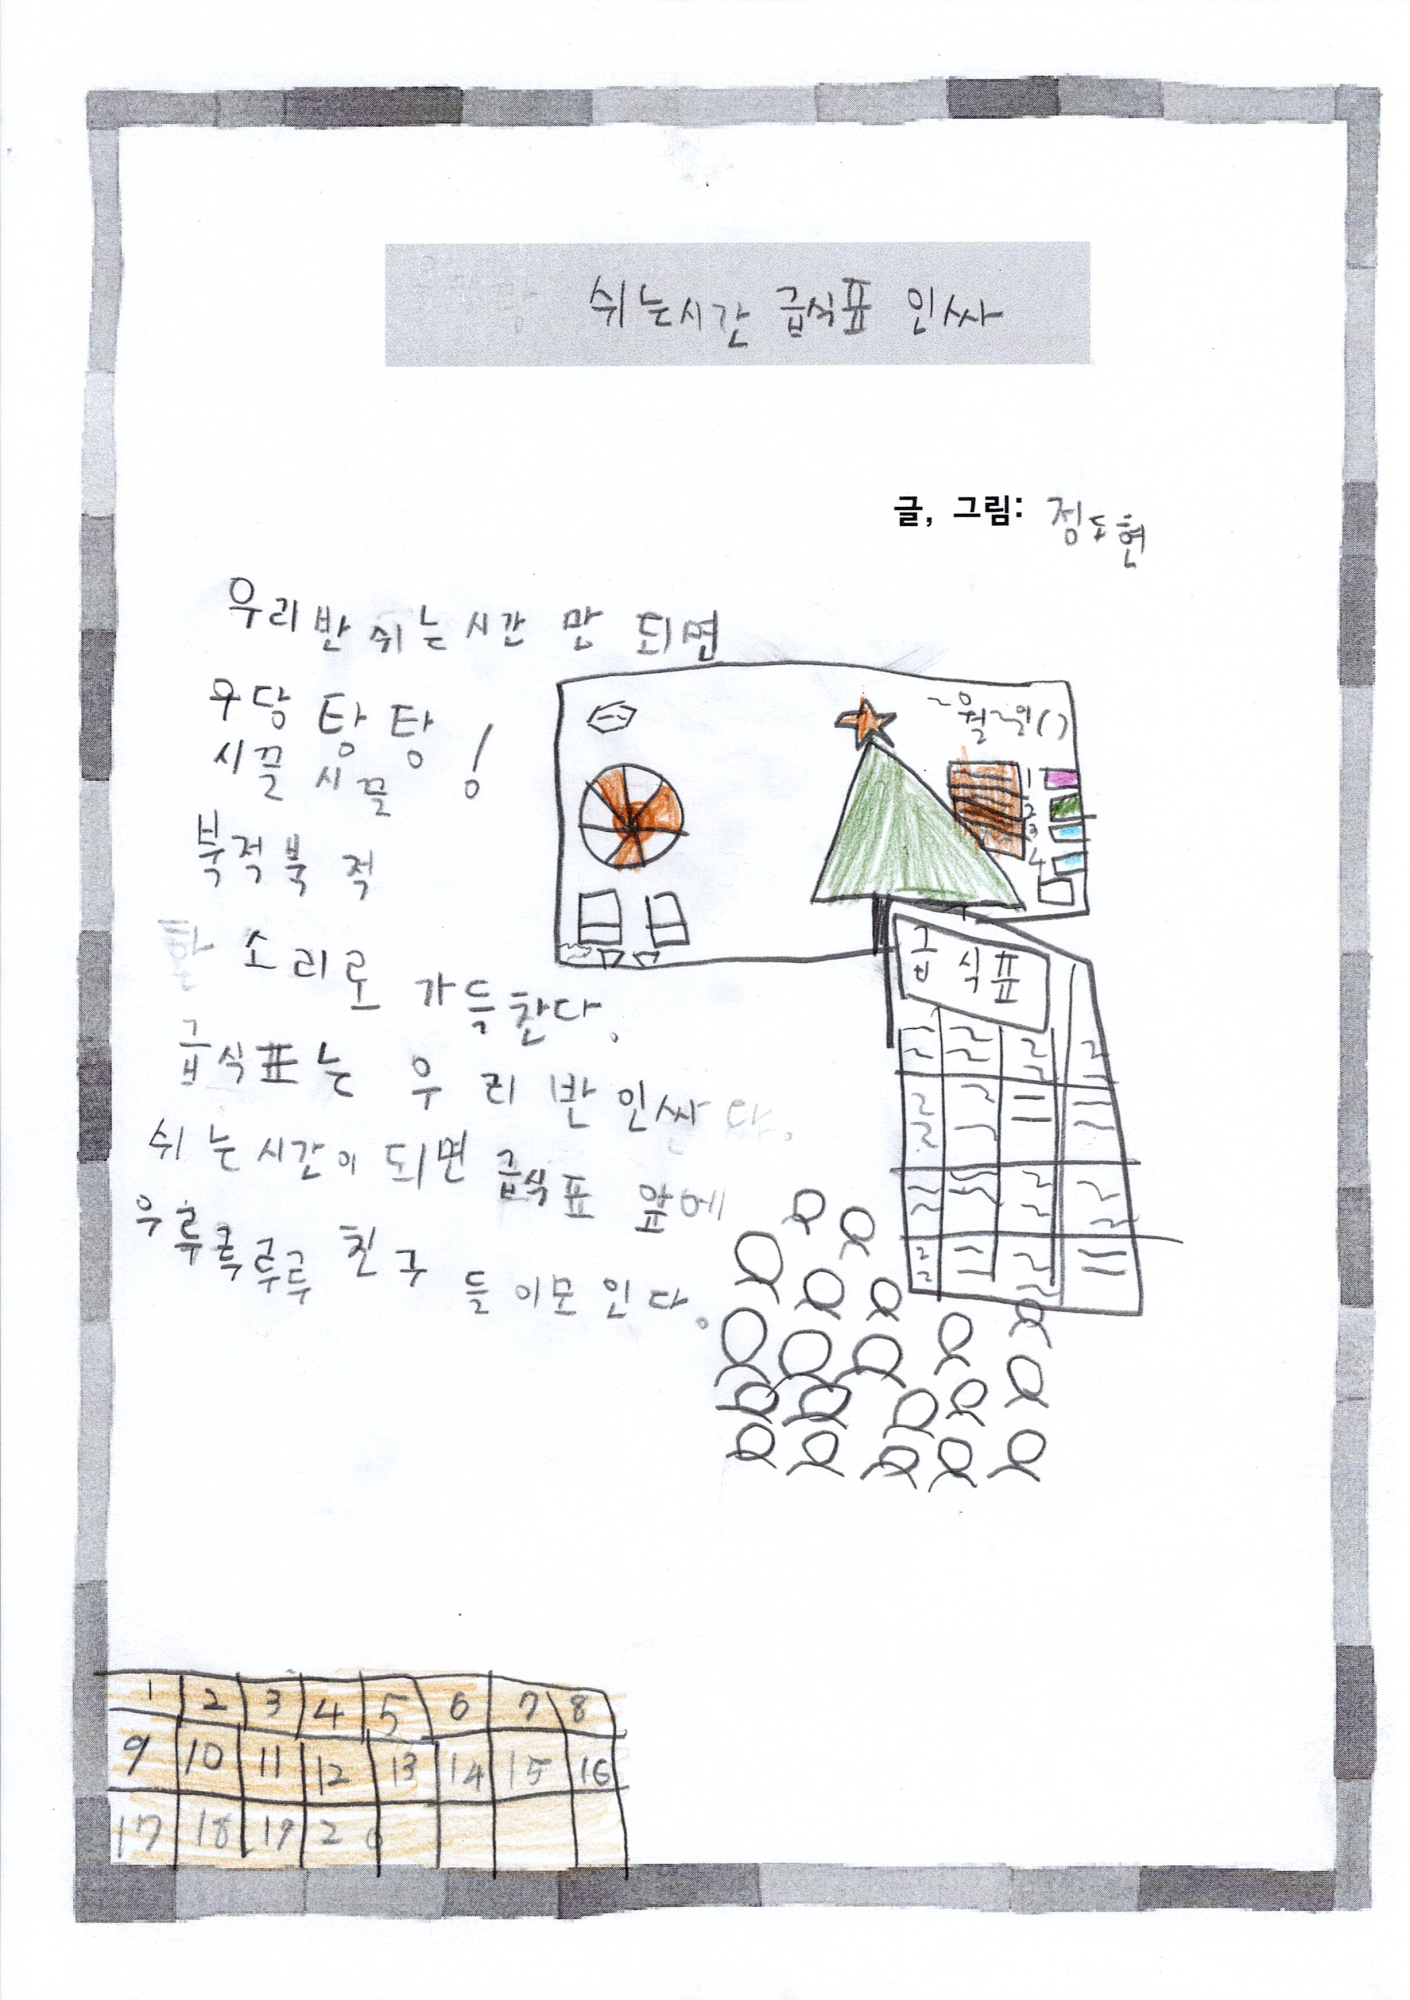 쉬는시간 급식표 인싸
글, 그림: 정도현
우리반 쉬는 시간 만 되면
우당 탕 탕
시끌 시끌 !
북적북 적
소리로 가득찬다.
급식표는 우리 반 인싸다.
쉬는시간이 되면 급식표 앞에
우루루루루 친구들이모인다.
~월~일()
1
2
3
4
급식표
1 2 3 4 5 6 7 8
9 10 11 12 13 14 15 16
17 18 19 20